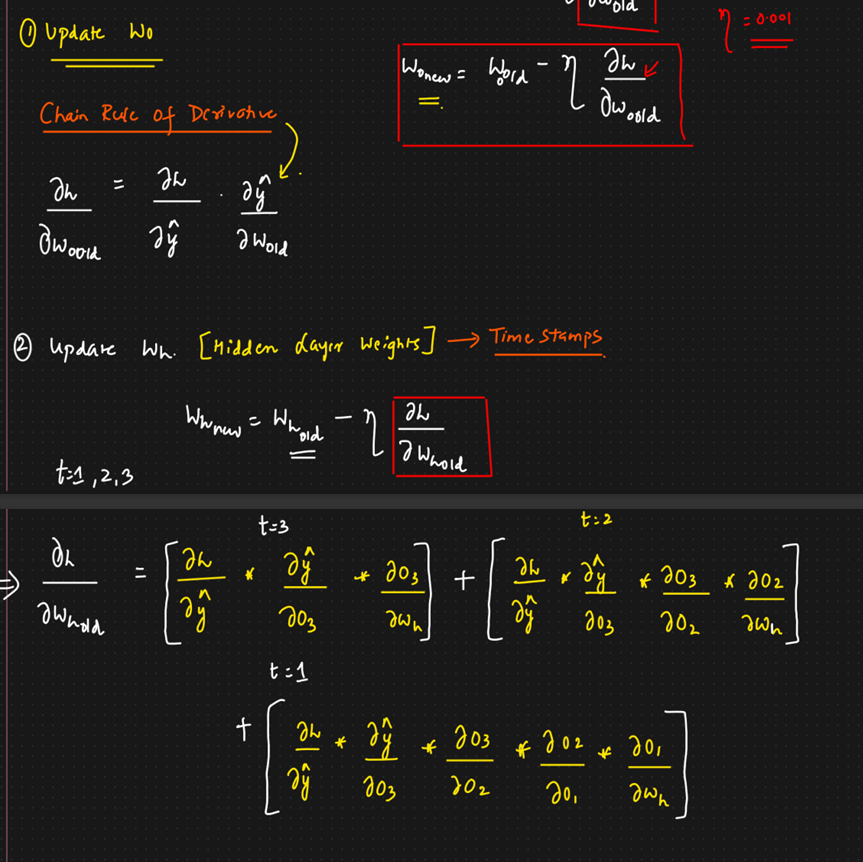 ∂W₀old
η = 0.001
① Update W₀
W₀new = W₀old − η ∂L/∂W₀old
Chain Rule of Derivative
∂L/∂W₀old = ∂L/∂ŷ · ∂ŷ/∂W₀ld
② Update Wh. [Hidden Layer Weights] → Time Stamps
Whnew = Whold − η ∂L/∂Whold
t=1,2,3
t=3 t=2
⇒ ∂L/∂Whold = [∂L/∂ŷ * ∂ŷ/∂O₃ * ∂O₃/∂Wh] + [∂L/∂ŷ * ∂ŷ/∂O₃ * ∂O₃/∂O₂ * ∂O₂/∂Wh]
t=1
+ [∂L/∂ŷ * ∂ŷ/∂O₃ * ∂O₃/∂O₂ * ∂O₂/∂O₁ * ∂O₁/∂Wh]